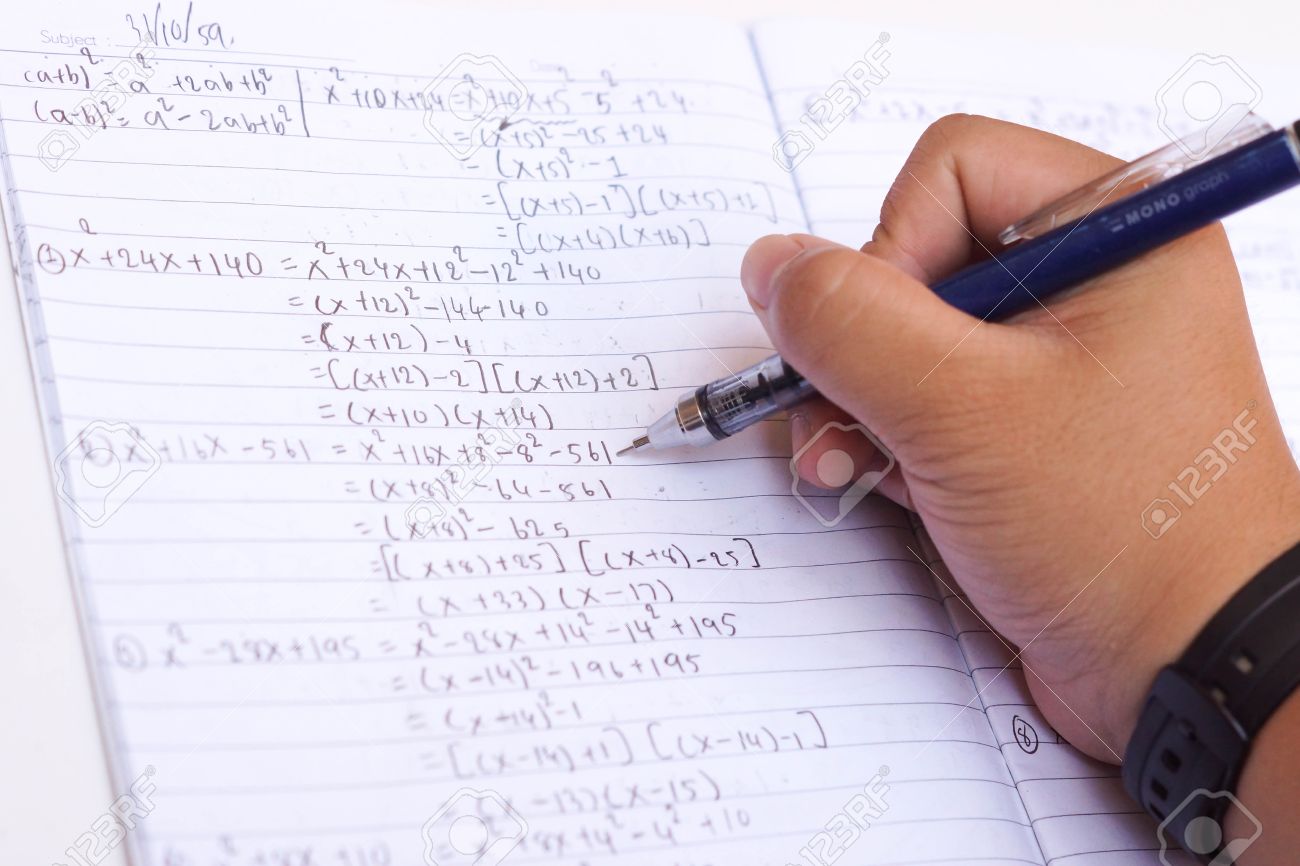 Subject : 31/10/59.
(a+b)² = a² + 2ab + b²
(a-b)² = a² - 2ab + b²
x² + 10x + 24 = x² + 10x + 5² - 5² + 24
= (x+5)² - 25 + 24
= (x+5)² - 1
= [(x+5) - 1][(x+5) + 1]
= [(x+4)(x+6)]
① x² + 24x + 140 = x² + 24x + 12² - 12² + 140
= (x+12)² - 144 - 140
= (x+12) - 4
= [(x+12) - 2][(x+12) + 2]
= (x+10)(x+14)
x² + 16x - 561 = x² + 16x + 8² - 8² - 561
= (x+8)² - 64 - 561
= (x+8)² - 625
= [(x+8) + 25][(x+8) - 25]
= (x+33)(x-17)
x² - 28x + 195 = x² - 28x + 14² - 14² + 195
= (x-14)² - 196 + 195
= (x+14)² - 1
= [(x-14) + 1][(x-14) - 1]
= (x-13)(x-15)
x² + 8x + 10 = x² + 8x + 4² - 4² + 10
MONO graph
⑧
123RF